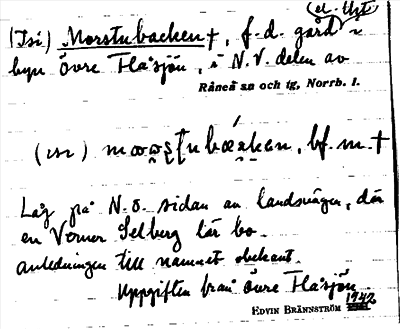 (el. Uxt)
(Isi) Morstubacken †, f.d. gård i
byn Övre Flåsjön, i N.V. delen av
Råneå sn och tg, Norrb. l.
bf. m. †
Låg på N.Ö. sidan av landsvägen, där
en Verner Selberg lär bo.
Anledningen till namnet obekant.
Uppgiften från Övre Flåsjön.
EDVIN BRÄNNSTRÖM 1942